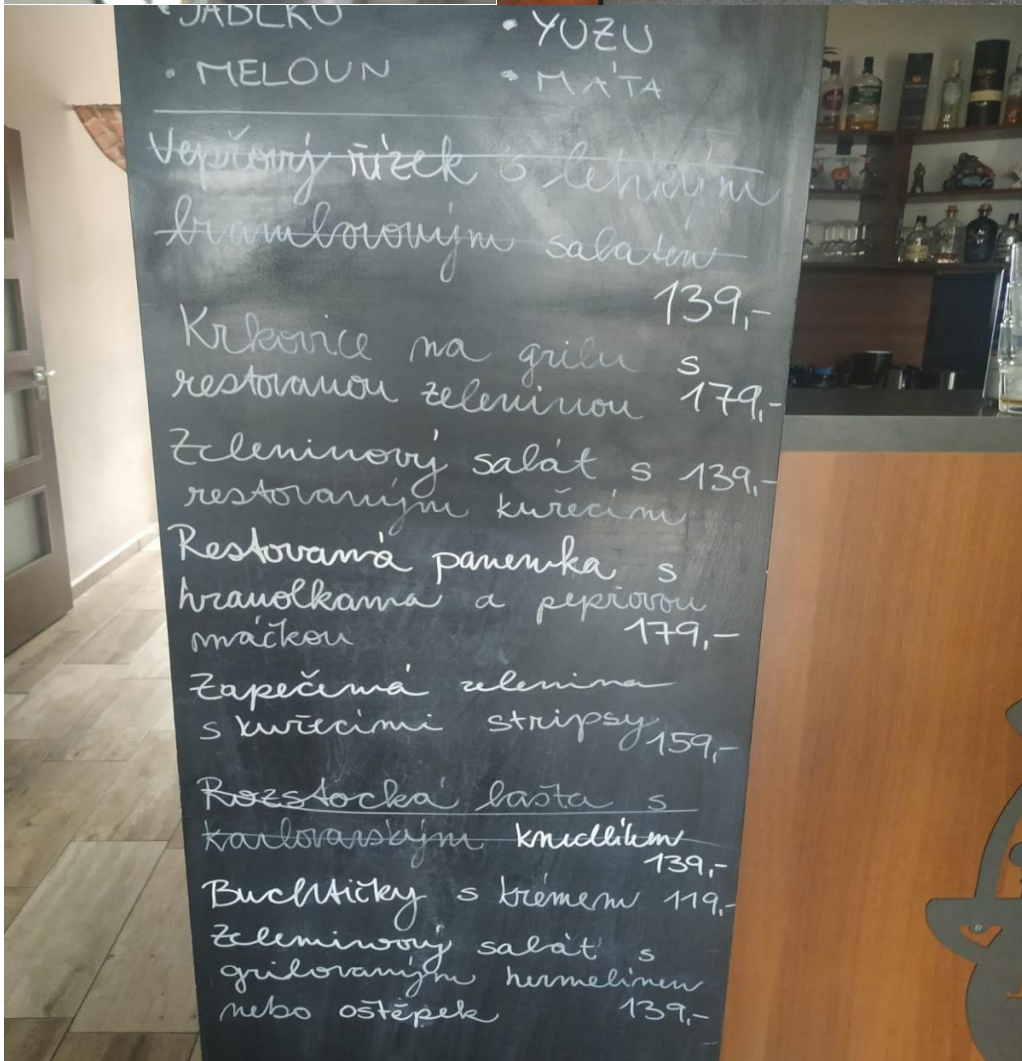 JABLKO
• YUZU
• MELOUN
• MÁTA
Vepřový řízek s lehkým
bramborovým salátem
139,-
Krkovice na grilu s
restovanou zeleninou 179,-
Zeleninový salát s 139,-
restovaným kuřecím
Restovaná panenka s
hranolkama a pepřovou
máčkou 179,-
Zapečená zelenina
s kuřecími stripsy 159,-
Rozstocká bašta s
karlovarským knedlíkem
139,-
Buchtičky s krémem 119,-
Zeleninový salát s
grilovaným hermelínem
nebo oštěpek 139,-